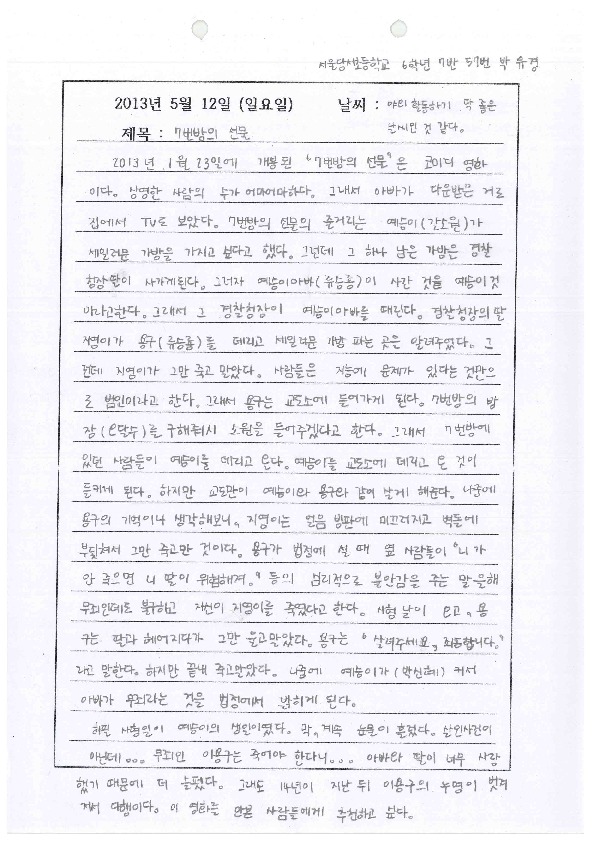 서울당서초등학교 6학년 7반 57번 박유경
2013년 5월 12일 (일요일) 날씨 : 야외 활동하기 딱 좋은
날씨인 것 같다.
제목 : 7번방의 선물
2013년 1월 23일에 개봉된 "7번방의 선물"은 코미디 영화
이다. 상영한 사람의 수가 어마어마하다. 그래서 아빠가 다운받은 거로
집에서 TV로 보았다. 7번방의 선물의 줄거리는 예승이(갈소원)가
세일러문 가방을 가지고 싶다고 했다. 그런데 그 하나 남은 가방은 경찰
청장 딸이 사가게된다. 그러자 예승이아빠(류승룡)이 사간 것을 예승이 것
이라고한다. 그래서 그 경찰청장이 예승이아빠를 때린다. 경찰청장의 딸
지영이가 용구(류승룡)를 데리고 세일러문 가방 파는 곳은 알려주었다. 그
런데 지영이가 그만 죽고 말았다. 사람들은 지능에 문제가 있다는 것만으
로 범인이라고 한다. 그래서 용구는 교도소에 들어가게 된다. 7번방의 방
장(오달수)를 구해줘서 소원을 들어주겠다고 한다. 그래서 7번방에
있던 사람들이 예승이를 데리고 온다. 예승이를 교도소에 데리고 온 것이
들키게 된다. 하지만 교도관이 예승이와 용구와 같이 살게 해준다. 나중에
용구의 기억이나 생각해보니, 지영이는 얼음 빙판에 미끄러지고 벽돌에
부딪혀서 그만 죽고만 것이다. 용구가 법정에 설 때 옆 사람들이 "니가
안 죽으면 니 딸이 위험해져." 등의 심리적으로 불안감을 주는 말을해
무죄인데도 불구하고 자신이 지영이를 죽였다고 한다. 사형 날이 오고, 용
구는 딸과 헤어지다가 그만 울고말았다. 용구는 "살려주세요, 죄송합니다."
라고 말한다. 하지만 끝내 죽고말았다. 나중에 예승이가 (박신혜) 커서
아빠가 무죄라는 것을 법정에서 밝히게 된다.
하필 사형일이 예승이의 생일이였다. 각, 계속 눈물이 흘렀다. 살인사건이
아닌데... 무죄인 이용구는 죽어야 한다니... 아빠와 딸이 너무 사랑
했기 때문에 더 슬펐다. 그래도 14년이 지난 뒤 이용구의 누명이 벗겨
져서 다행이다. 이 영화를 안본 사람들에게 추천하고 싶다.